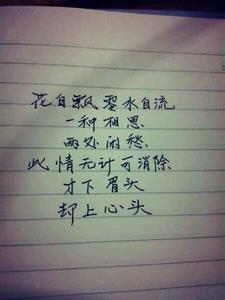 花自飘零水自流
一种相思.
两处闲愁.
此情无计可消除
才下眉头
却上心头